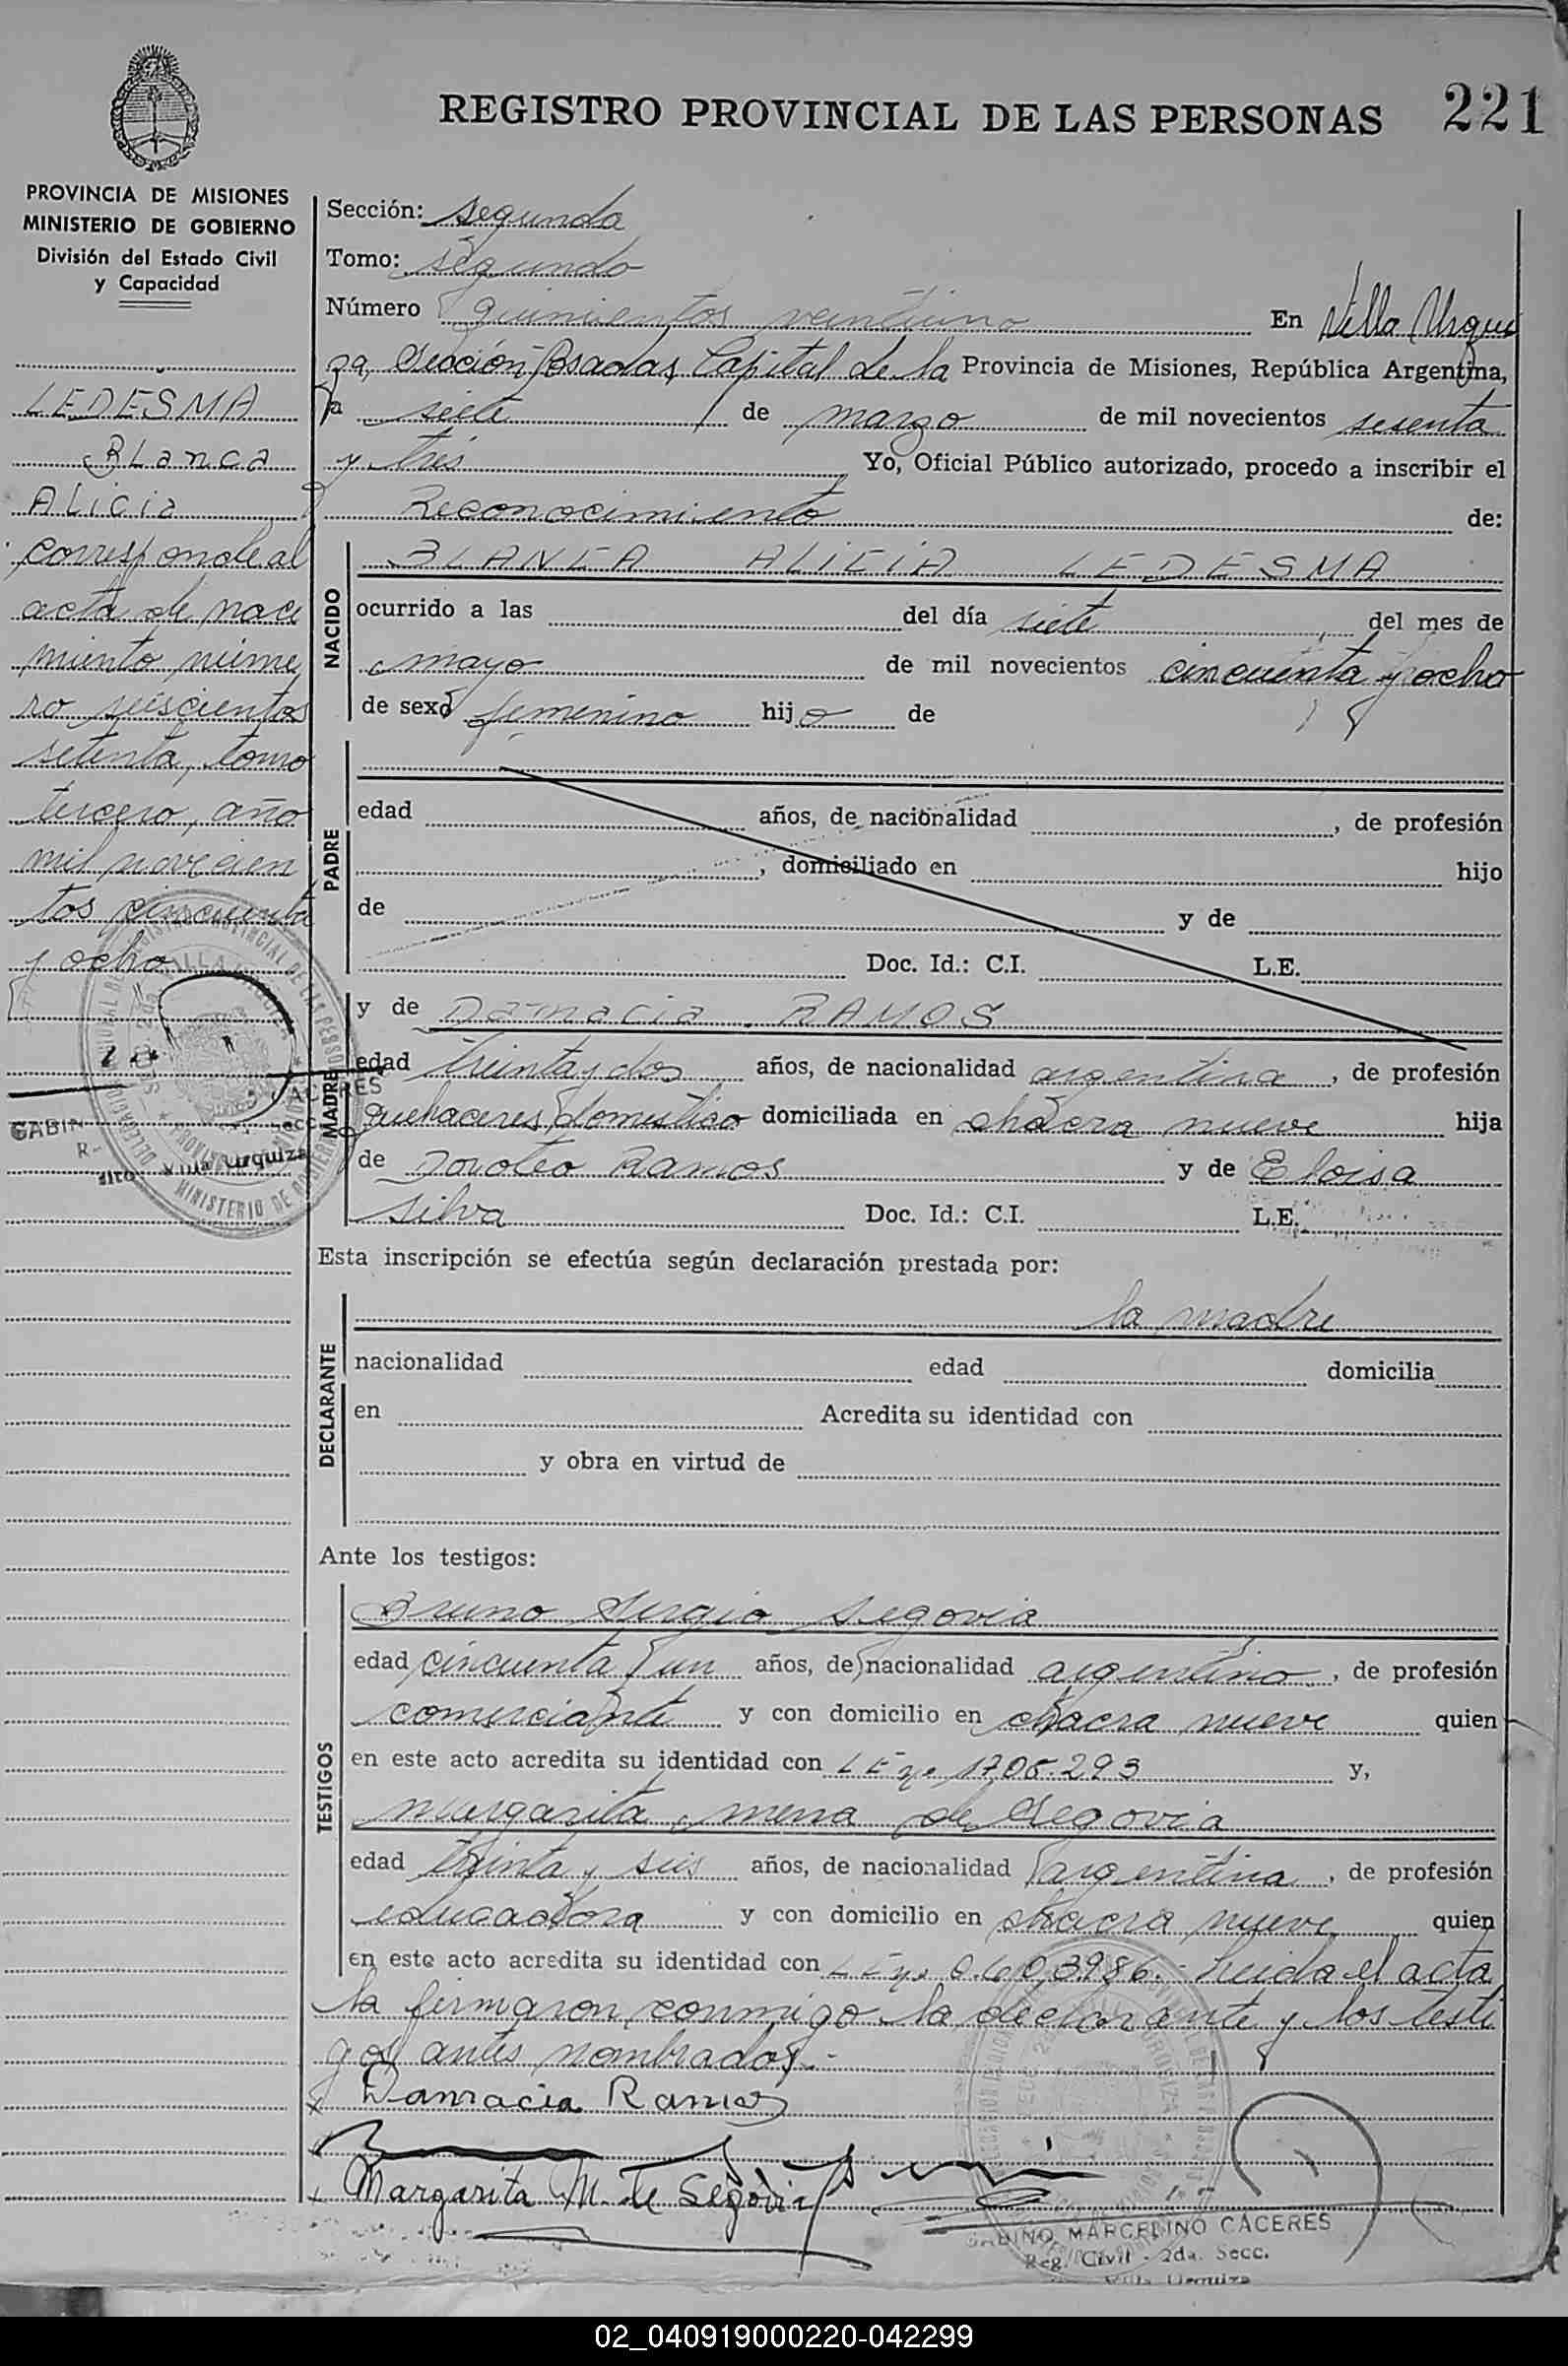 REGISTRO PROVINCIAL DE LAS PERSONAS 221
PROVINCIA DE MISIONES
MINISTERIO DE GOBIERNO
División del Estado Civil
y Capacidad
LEDESMA
Blanca
Alicia
corresponde al
acta de naci
miento núme
ro seiscientos
setenta, tomo
tercero, año
mil novecien
tos cincuenta
y ocho
Sección: segunda
Tomo: segundo
Número quinientos veintiuno En Villa Urqui
za, Sección Posadas, Capital de la Provincia de Misiones, República Argentina,
a siete de marzo de mil novecientos sesenta
y tres Yo, Oficial Público autorizado, procedo a inscribir el
Reconocimiento de:
NACIDO
BLANCA ALICIA LEDESMA
ocurrido a las del día siete del mes de
mayo de mil novecientos cincuenta y ocho
de sexo femenino hijo de
PADRE
edad años, de nacionalidad , de profesión
, domiciliado en hijo
de y de
Doc. Id.: C.I. L.E.
MADRE
y de Damacia RAMOS
edad treinta y dos años, de nacionalidad argentina , de profesión
quehaceres domestico domiciliada en chacra nueve hija
de Doroteo Ramos y de Eloisa
Silva Doc. Id.: C.I. L.E.
Esta inscripción se efectúa según declaración prestada por:
DECLARANTE
la madre
nacionalidad edad domicilia
en Acredita su identidad con
y obra en virtud de
Ante los testigos:
TESTIGOS
Bruno Sergio Segovia
edad cincuenta y un años, de nacionalidad argentino , de profesión
comerciante y con domicilio en chacra nueve quien
en este acto acredita su identidad con L E nº 1706.293 y,
Margarita mena de Segovia
edad treinta y seis años, de nacionalidad argentina , de profesión
educadora y con domicilio en chacra nueve quien
en este acto acredita su identidad con L E nº 6.603986.- Leida el acta
la firmaron conmigo la declarante y los testi
gos antes nombrados.-
x Damacia Ramos
x Margarita M. de Segovia
GABINO MARCELINO CACERES
Reg. Civil - 2da. Secc.
Villa Urquiza
02_040919000220-042299